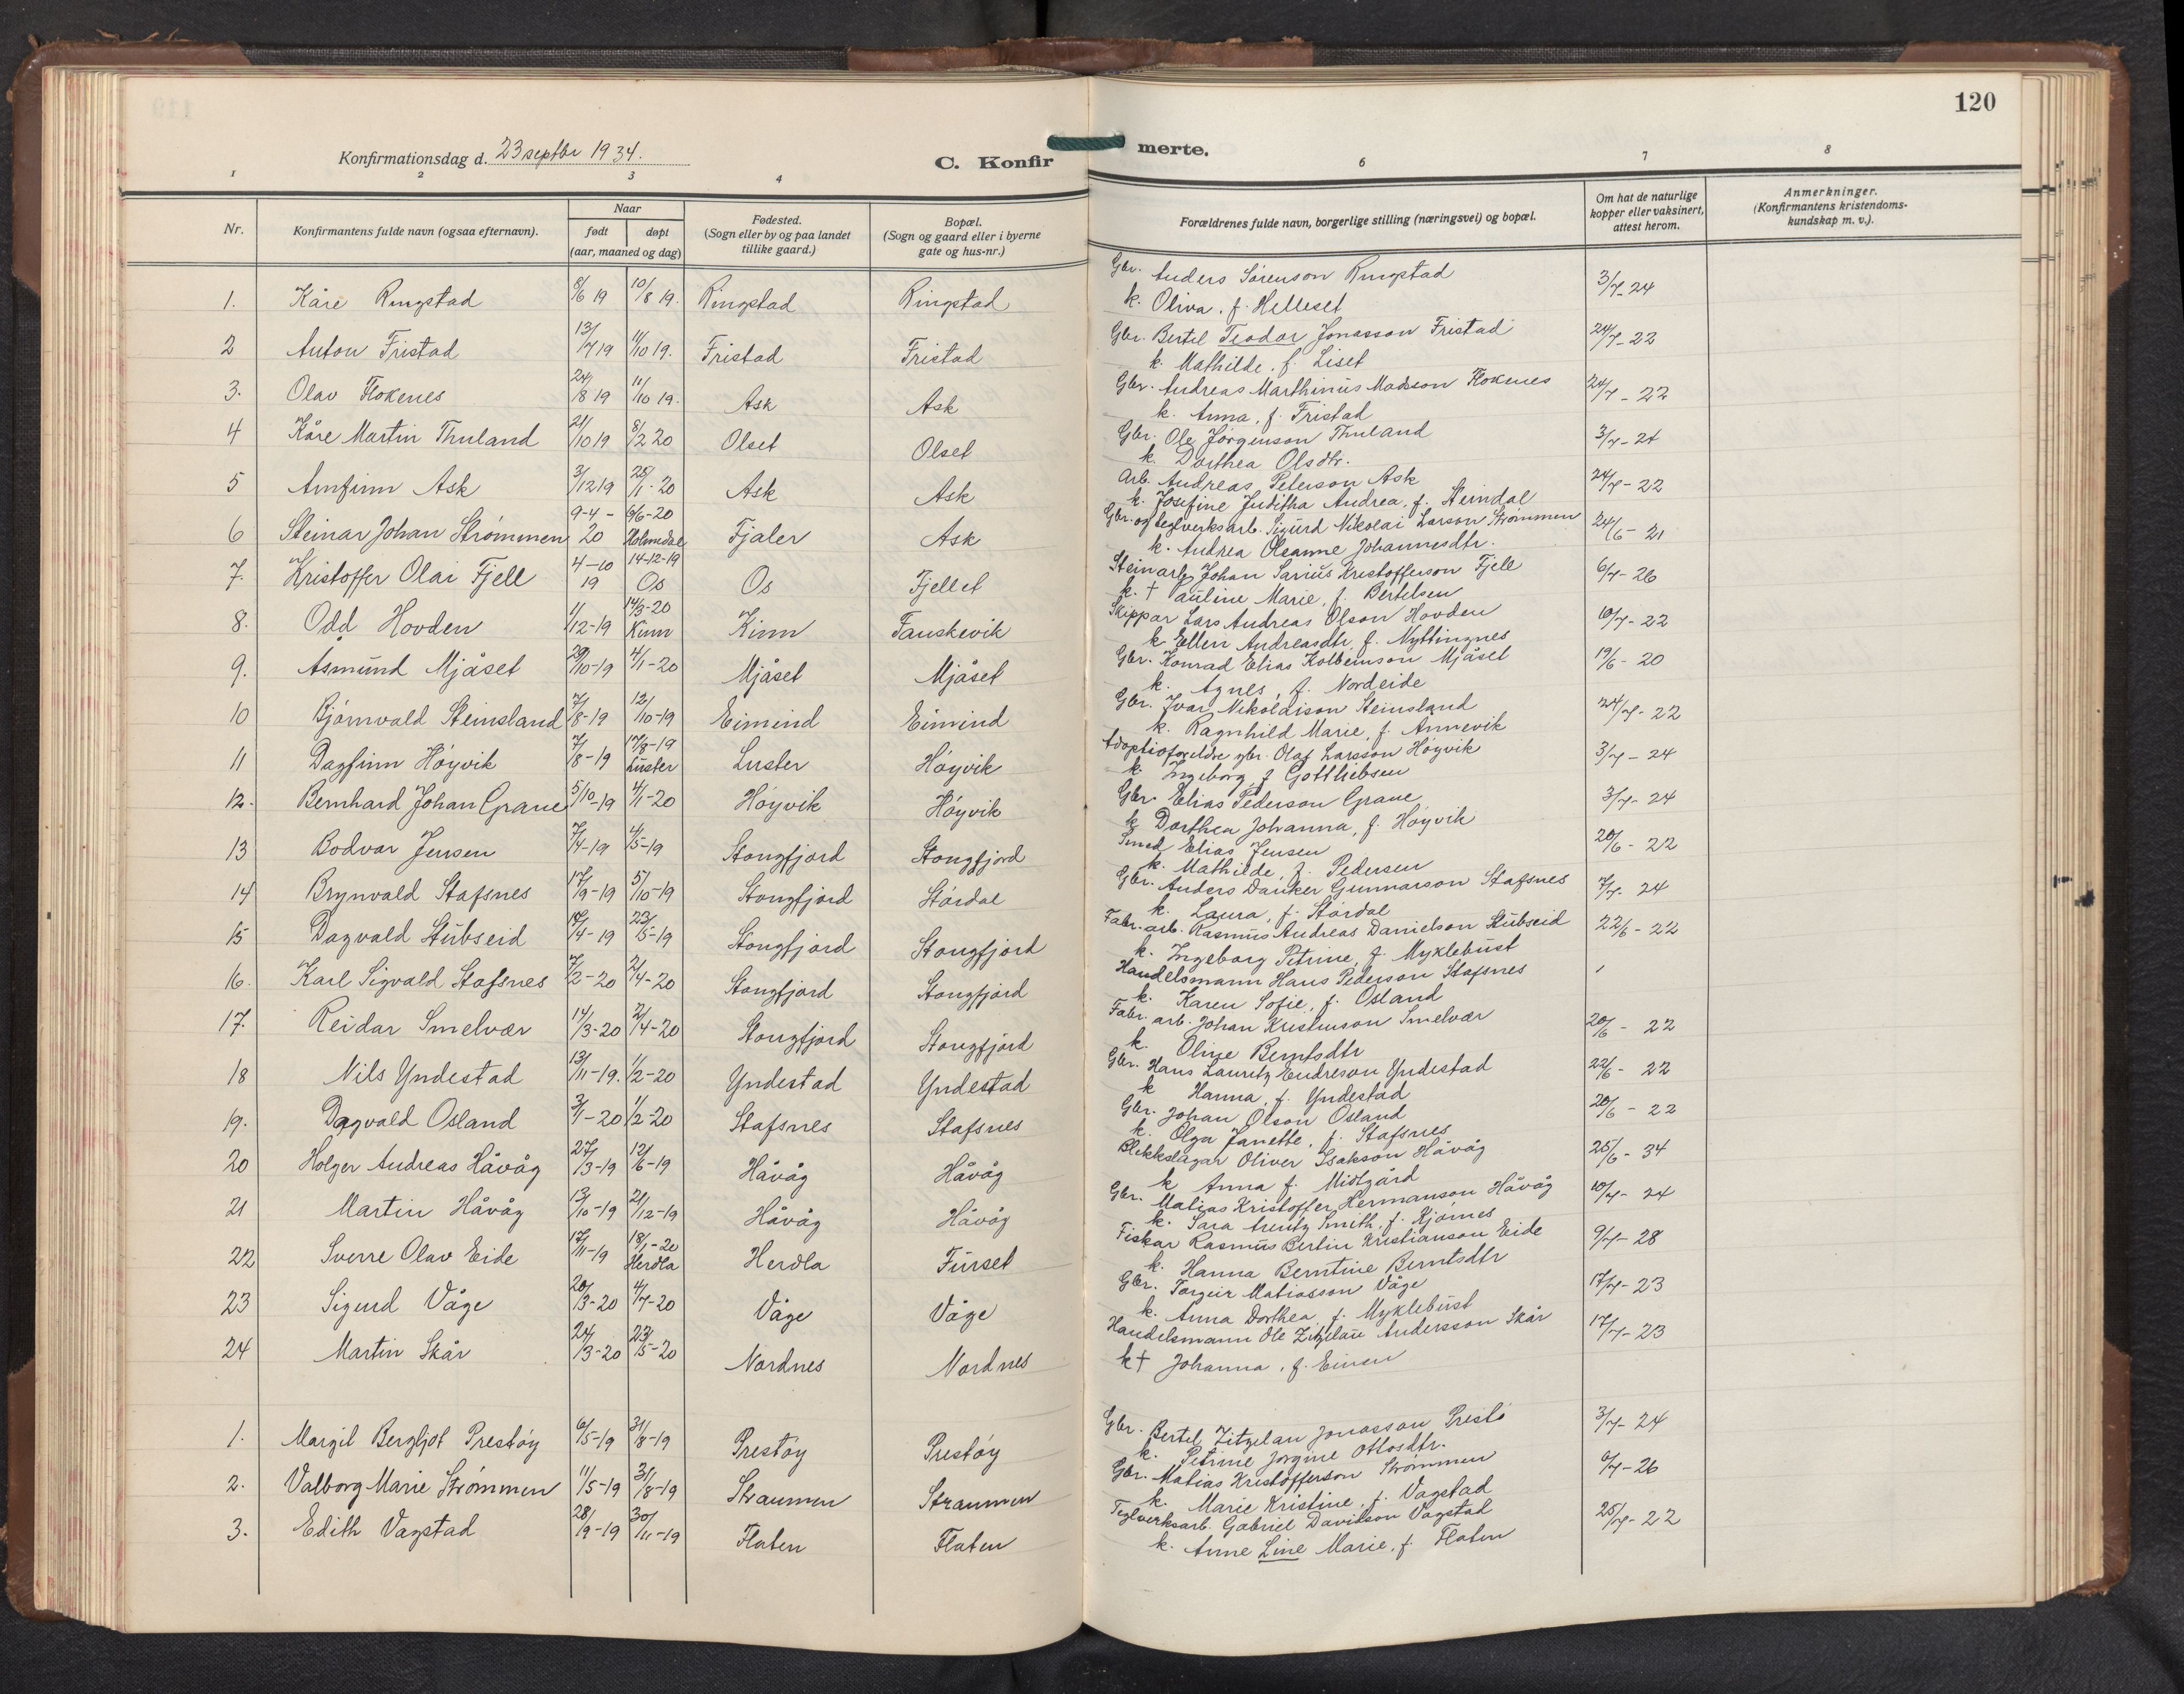 120
Konfirmationsdag d. 23 septbr 1934.
C. Konfirmerte.
1 2 3 4 6 7 8
Nr. Konfirmantens fulde navn (ogsaa efternavn). Naar født døpt (aar, maaned og dag) Fødested. (Sogn eller by og paa landet tillike gaard.) Bopæl. (Sogn og gaard eller i byerne gate og hus-nr.) Forældrenes fulde navn, borgerlige stilling (næringsvei) og bopæl. Om hat de naturlige kopper eller vaksinert, attest herom. Anmerkninger. (Konfirmantens kristendomskundskap m. v.).
1. Kåre Ringstad 8/6 19 10/8 19. Ringstad Ringstad Gbr. Anders Sørenson Ringstad 3/7-24
k. Oliva, f. Helleset
2 Anton Fristad 13/7 19 11/10 19. Fristad Fristad Gbr. Bertel Teodor Jonasson Fristad 24/7-22
k. Mathilde, f. Liset
3. Olav Flokenes 24/8 19 11/10 19. Ask Ask Gbr. Andreas Marthinus Madsson Flokenes 24/7-22
k. Anna, f. Fristad
4 Kåre Martin Thuland 21/10 19 8/2 20 Olset Olset Gbr. Ole Jørgenson Thuland 3/7-24
k. Dorthea Olsdtr.
5 Arnfinn Ask 3/12 19 25/1-20 Ask Ask Arb. Andreas Peterson Ask 24/7-22
k. Josefine Juditha Andrea, f. Steindal
6 Steinar Johan Strømmen 9-4-20 6/6-20 Holmedal Fjaler Ask Gbr. og teglverksarb. Sigurd Nikolai Larson Strømmen 24/6-21
k. Andrea Oleanne Johannesdtr.
7. Kristoffer Olai Fjell 4-10 19 14-12-19 Os Os Fjellet Steinarb. Johan Sarius Kristofferson Fjell 6/7-26
k. † Pauline Marie, f. Bertelsen
8. Odd Hovden 1/12-19 14/3-20 Kinn Kinn Fauskevik Skippar Lars Andreas Olson Hovden 10/7-22
k. Ellen Andreasdtr. f. Nyttingnes
9. Åsmund Mjåset 29/10-19 4/1-20 Mjåset Mjåset Gbr. Konrad Elias Kolbeinson Mjåset 19/6-20
k. Agnes, f. Nordeide
10 Bjørnvald Steinsland 7/8-19 12/10-19 Eimind Eimind Gbr. Ivar Nikolaison Steinsland 24/7-22
k. Ragnhild Marie, f. Annevik
11 Dagfinn Høyvik 7/8-19 17/8-19 Luster Luster Høyvik Adoptioforeldre gbr. Olaf Larsson Høyvik 3/7-24
k. Ingeborg f. Gottliebsen
12. Bernhard Johan Grane 5/10-19 4/1-20 Høyvik Høyvik Gbr. Elias Pederson Grane 3/7-24
k. Dorthea Johanna, f. Høyvik
13 Bodvar Jensen 7/4-19 4/5-19 Stongfjord Stongfjord Smed Elias Jensen 20/6-22
k. Mathilde, f. Pedersen
14 Brynvald Stafsnes 17/9-19 5/10-19 Stongfjord Stórdal Gbr. Anders Danker Gunnarson Stafsnes 7/7-24
k. Laura, f. Stórdal
15 Dagvald Stubseid 14/4-19 23/5-19 Stongfjord Stongfjord Fabr. arb. Rasmus Andreas Danielson Stubseid 22/6-22
k. Ingeborg Petrine, f. Myklebust
16. Karl Sigvald Stafsnes 7/2-20 2/4-20 Stongfjord Stongfjord Handelsmann Hans Pederson Stafsnes
k. Karen Sofie, f. Osland
17. Reidar Smelvær 14/3-20 2/4-20 Stongfjord Stongfjord Fabr. arb. Johan Kristenson Smelvær 20/6-22
k. Oline Berntsdtr
18 Nils Yndestad 13/11-19. 1/2-20 Yndestad Yndestad Gbr. Hans Lauritz Endreson Yndestad 22/6-22
k Hanna, f. Yndestad
19. Dagvald Osland 3/1-20 1/2-20 Stafsnes Stafsnes Gbr. Johan Olson Osland 20/6-22
k. Olga Janette, f. Stafsnes
20 Holger Andreas Håvåg 27/3-19 12/6-19 Håvåg Håvåg Blekkslagar Oliver Isakson Håvåg 25/6-34
k Anna f. Midtgård
21 Martin Håvåg 13/10-19 21/12-19 Håvåg Håvåg Gbr. Matias Kristoffer Hermanson Håvåg 10/7-24
k. Sara Arentz Smith, f. Kjørnes
22 Sverre Olav Eide 17/11-19 18/1-20 Herdla Herdla Furset Fiskar Rasmus Bertin Kristianson Eide 9/7-28
k. Hanna Berntine Berntsdtr
23 Sigurd Våge 20/3-20 4/7-20 Våge Våge Gbr. Torgeir Matiasson Våge 17/7-23
k. Anna Dorthea, f. Myklebust
24 Martin Skår 24/3-20 23/5-20 Nordnes Nordnes Handelsmann Ole Zitzelau Andersson Skår 17/7-23
k † Johanna, f. Einen
1. Margit Bergljot Prestøy 6/5-19 31/8-19 Prestøy Prestøy Gbr. Bertel Zitzelau Jonasson Prestø 3/7-24
k. Petrine Jorgine Ottosdtr.
2. Valborg Marie Strømmen 11/5-19 31/8-19 Straumen Straumen Gbr. Matias Kristofferson Strømmen 6/7-26
k. Marie Kristine, f. Vagstad
3. Edith Vagstad 28/9-19 30/11-19 Flaten Flaten Teglverksarb. Gabriel Davidson Vagstad 25/7-22
k. Anne Line Marie, f. Flaten